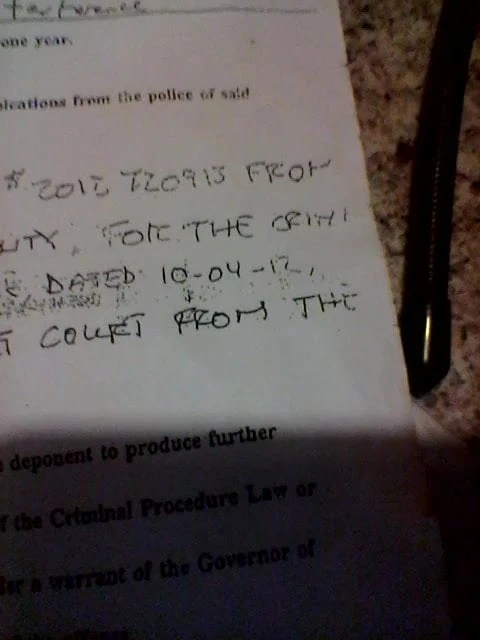 one year.
from the police of said
2012 T20913 FROM
FOR THE CRIMI
DATED 10-04-12,
COURT FROM THE
deponent to produce further
f the Criminal Procedure Law or
a warrant of the Governor of